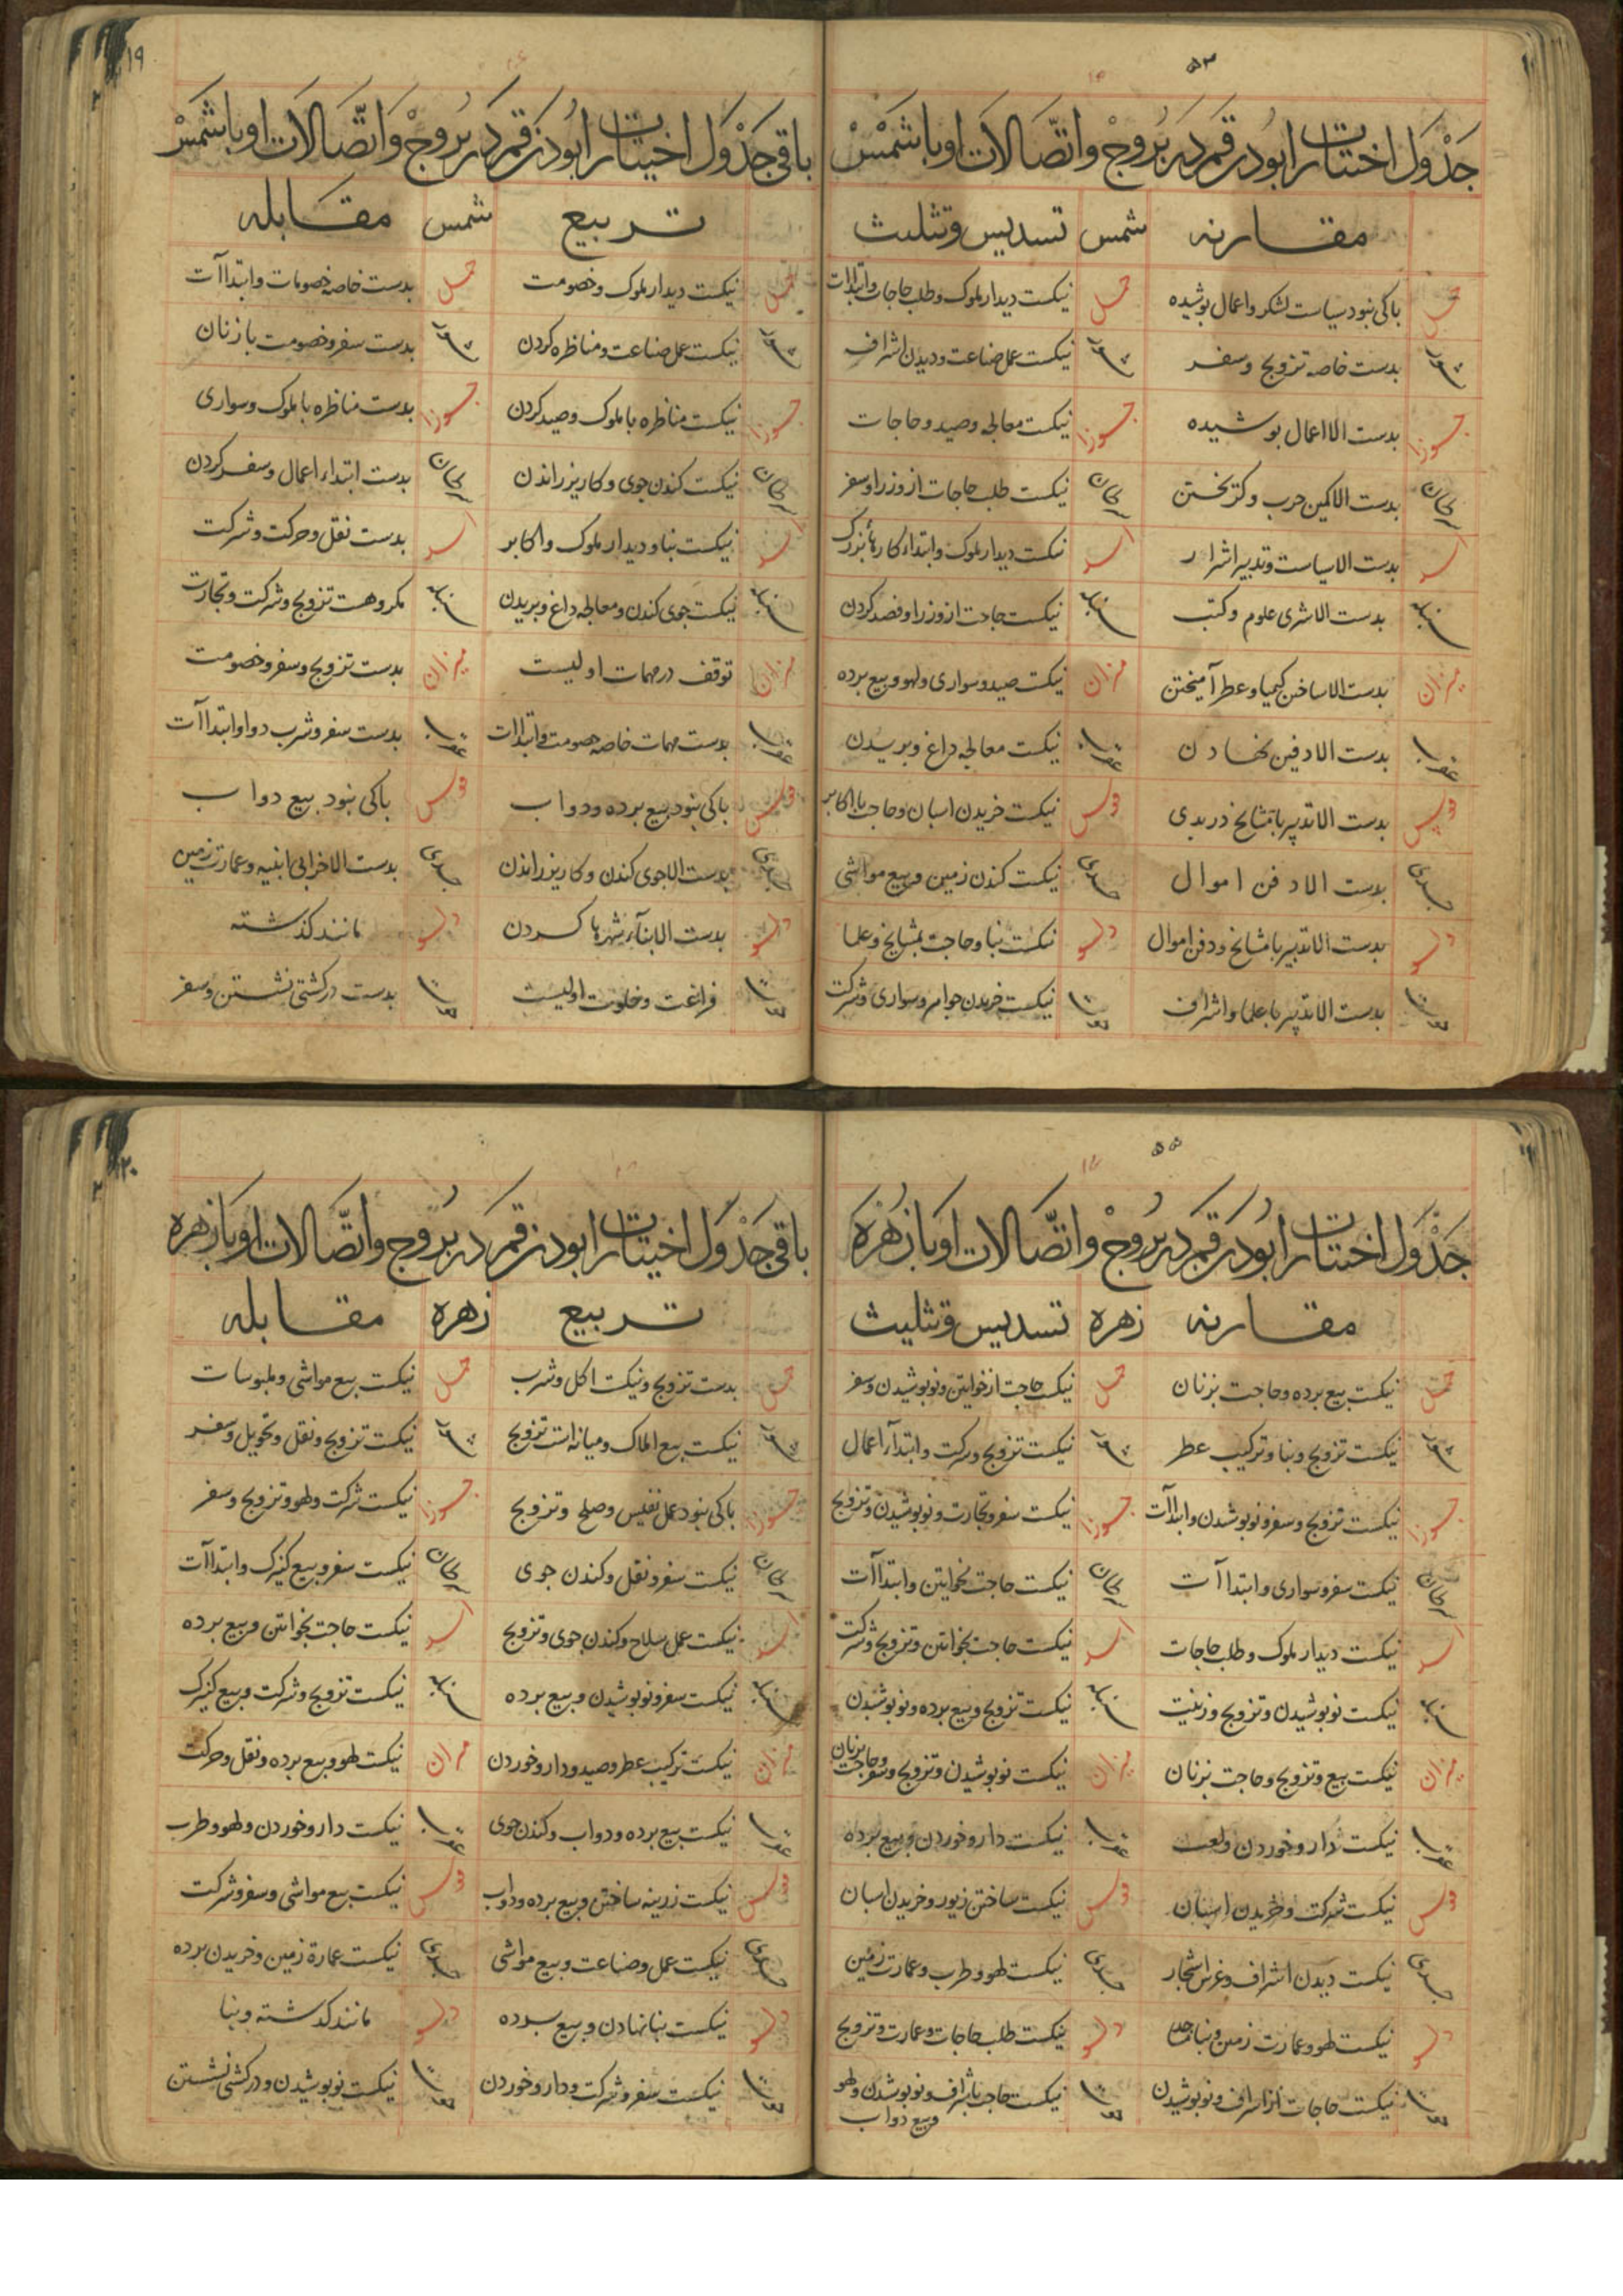 ۵۳
جدول اختیارات ابودر قمر در بروج واتصالات او با شمس
مقارنه شمس تسدیس و تثلیث
حمل باکی نبود سیاست لشکر واعمال پوشیده حمل نیکست دیدار ملوک وطلب حاجات وابتداات
ثور بدست خاصه تزویج وسفر ثور نیکست عمل صناعت ودیدن اشراف
جوزا بدست الا اعمال پوشیده جوزا نیکست معالجه وصید وحاجات
سرطان بدست الا کمین حرب وکریختن سرطان نیکست طلب حاجات از وزرا وسفر
اسد بدست الا سیاست وتدبیر اشرار اسد نیکست دیدار ملوک وابتداء کارهاء بزرک
سنبله بدست الا شری علوم وکتب سنبله نیکست حاجت از وزرا وفصد کردن
میزان بدست الا ساختن کیمیا وعطر آمیختن میزان نیکست صید وسواری ولهو وبیع برده
عقرب بدست الا دفین نهادن عقرب نیکست معالجه داغ وبریدن
قوس بدست الا تدبیر با مشایخ در بدی قوس نیکست خریدن اسبان وحاجت با اکابر
جدی بدست الا دفن اموال جدی نیکست کندن زمین وبیع مواشی
دلو بدست الا تدبیر با مشایخ ودفن اموال دلو نیکست بنا وحاجت بمشایخ وعلما
حوت بدست الا تدبیر با علما واشراف حوت نیکست خریدن جواهر وسواری وشرکت
۱۹
باقی جدول اختیارات ابودر قمر در بروج واتصالات او با شمس
تربیع شمس مقابله
حمل نیکست دیدار ملوک وخصومت حمل بدست خاصه خصومات وابتداآت
ثور نیکست عمل صناعت ومناظره کردن ثور بدست سفر وخصومت با زنان
جوزا نیکست مناظره با ملوک وصید کردن جوزا بدست مناظره با ملوک وسواری
سرطان نیکست کندن جوی وکاریز راندن سرطان بدست ابتداء اعمال وسفر کردن
اسد نیکست بنا ودیدار ملوک واکابر اسد بدست نقل وحرکت وشرکت
سنبله نیکست جوی کندن ومعالجه داغ وبریدن سنبله مکروهست تزویج وشرکت وتجارت
میزان توقف در مهمات اولیست میزان بدست تزویج وسفر وخصومت
عقرب بدست مهمات خاصه خصومت وابتداات عقرب بدست سفر وشرب دوا وابتداآت
قوس باکی نبود بیع برده ودواب قوس باکی نبود بیع دواب
جدی بدست الا جوی کندن وکاریز راندن جدی بدست الا خرابی ابنیه وعمارت زمین
دلو بدست الا بناء شهرها کردن دلو مانند کذشته
حوت فراغت وخلوت اولیست حوت بدست در کشتی نشستن وسفر
۵۵
جدول اختیارات ابودر قمر در بروج واتصالات او با زهره
مقارنه زهره تسدیس و تثلیث
حمل نیکست بیع برده وحاجت بزنان حمل نیکست حاجت از خواتین ونو پوشیدن وسفر
ثور نیکست تزویج وبنا وترکیب عطر ثور نیکست تزویج وشرکت وابتداء اعمال
جوزا نیکست تزویج وسفر ونو پوشیدن وابتداآت جوزا نیکست سفر وتجارت ونو پوشیدن وتزویج
سرطان نیکست سفر وسواری وابتداآت سرطان نیکست حاجت بخواتین وابتداآت
اسد نیکست دیدار ملوک وطلب حاجات اسد نیکست حاجت بخواتین وتزویج وشرکت
سنبله نیکست نو پوشیدن وتزویج وزینت سنبله نیکست تزویج وبیع برده ونو پوشیدن
میزان نیکست بیع وتزویج وحاجت بزنان میزان نیکست نو پوشیدن وتزویج وسفر وحاجت بزنان
عقرب نیکست دارو خوردن ولعب عقرب نیکست دارو خوردن وبیع برده
قوس نیکست شرکت وخریدن اسبان قوس نیکست ساختن زیور وخریدن اسبان
جدی نیکست دیدن اشراف وغرس اشجار جدی نیکست لهو وطرب وعمارت زمین
دلو نیکست لهو وعمارت زمین وبنا دلو نیکست طلب حاجات وعمارت وتزویج
حوت نیکست حاجات از اشراف ونو پوشیدن حوت نیکست حاجت باشراف ونو پوشیدن ولهو وبیع دواب
۲۰
باقی جدول اختیارات ابودر قمر در بروج واتصالات او با زهره
تربیع زهره مقابله
حمل بدست تزویج ونیکست اکل وشرب حمل نیکست بیع مواشی وملبوسات
ثور نیکست بیع املاک ومیانه است تزویج ثور نیکست تزویج ونقل وتحویل وسفر
جوزا باکی نبود عمل نفیس وصلح وتزویج جوزا نیکست شرکت ولهو وتزویج وسفر
سرطان نیکست سفر ونقل وکندن جوی سرطان نیکست سفر وبیع کنیزک وابتداآت
اسد نیکست عمل سلاح وکندن جوی وتزویج اسد نیکست حاجت بخواتین وبیع برده
سنبله نیکست سفر ونو پوشیدن وبیع برده سنبله نیکست تزویج وشرکت وبیع کنیزک
میزان نیکست ترکیب عطر وصید ودارو خوردن میزان نیکست لهو وبیع برده ونقل وحرکت
عقرب نیکست بیع برده ودواب وکندن جوی عقرب نیکست دارو خوردن ولهو وطرب
قوس نیکست زرینه ساختن وبیع برده ودواب قوس نیکست بیع مواشی وسفر وشرکت
جدی نیکست عمل وصناعت وبیع مواشی جدی نیکست عمارة زمین وخریدن برده
دلو نیکست بنا نهادن وبیع برده دلو مانند کذشته وبنا
حوت نیکست سفر وشرکت ودارو خوردن حوت نیکست نو پوشیدن ودر کشتی نشستن